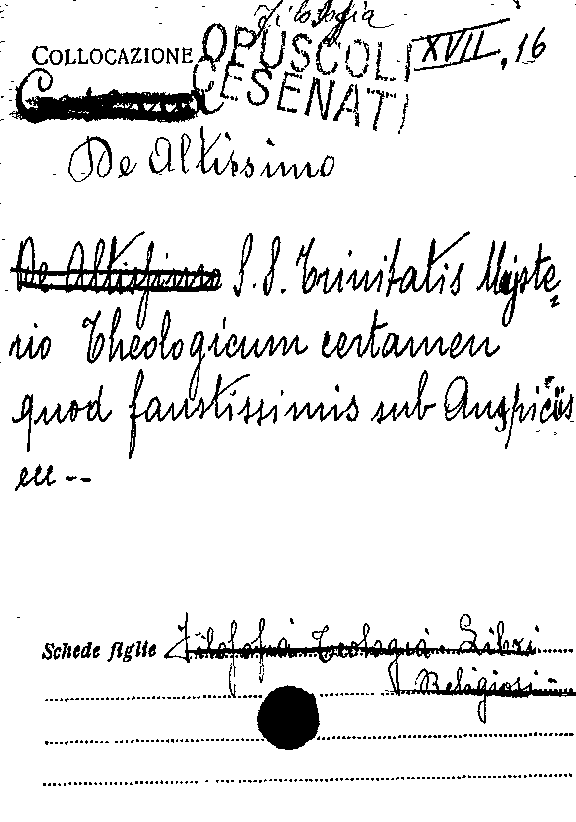 Filologia
COLLOCAZIONE OPUSCOLI XVII, 16
CESENATI
De Altissimo
De Altissimo S. S. Trinitatis Myste=
rio Theologicum certamen
quod faustissimis sub Auspiciis
ecc --
Schede figlie Filosofia Teologia. Libri
Religiosi